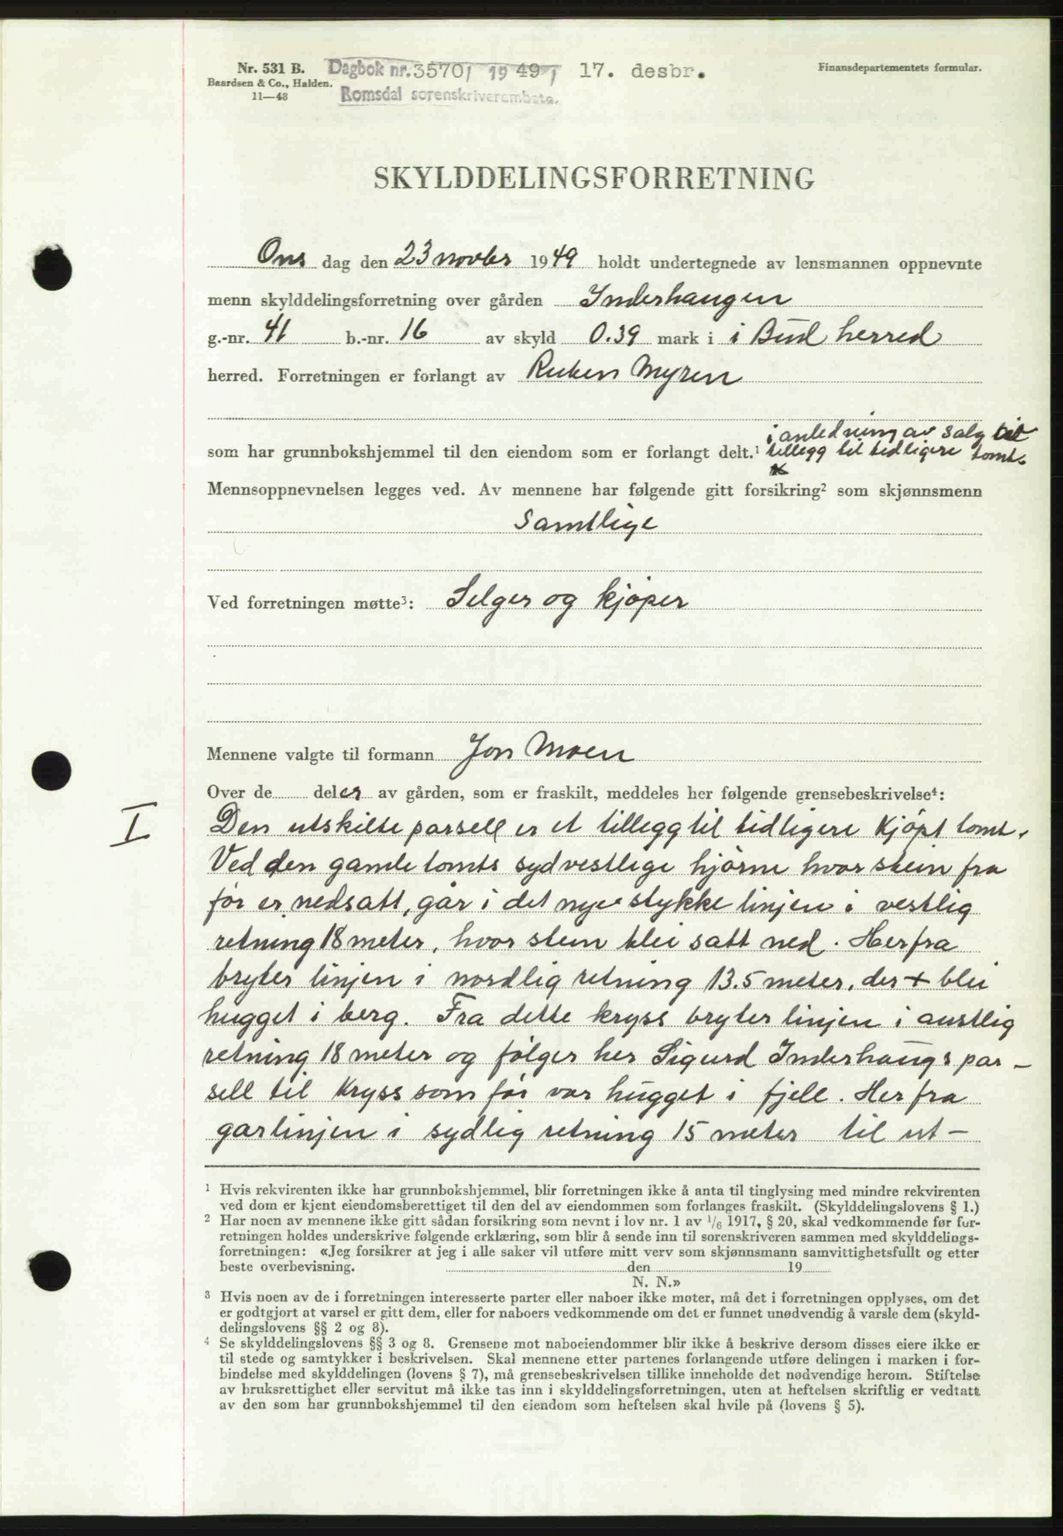 Nr. 531 B.
Baardsen & Co., Halden.
11—48
Dagbok nr. 3570/ 19 49 / 17. desbr.
Romsdal sorenskriverembete.
Finansdepartementets formular.
SKYLDDELINGSFORRETNING
Ons dag den 23 novbr 1949 holdt undertegnede av lensmannen oppnevnte
menn skylddelingsforretning over gården Inderhaugen
g.-nr. 41 b.-nr. 16 av skyld 0.39 mark i i Bud herred
herred. Forretningen er forlangt av Ruben Myren
som har grunnbokshjemmel til den eiendom som er forlangt delt.¹ i anledning av salg
tillegg til tidligere tomt.
Mennsoppnevnelsen legges ved. Av mennene har følgende gitt forsikring² som skjønnsmenn
Samtlige
Ved forretningen møtte³: Selger og kjøper
Mennene valgte til formann Jon Moen
Over de deler av gården, som er fraskilt, meddeles her følgende grensebeskrivelse⁴:
I
Den utskilte parsell er et tillegg til tidligere kjøpt tomt.
Ved den gamle tomts sydvestlige hjørne hvor stein fra
før er nedsatt, går i det nye stykke linjen i vestlig
retning 18 meter, hvor stein blei satt ned. Herfra
bryter linjen i nordlig retning 13.5 meter, der + blei
hugget i berg. Fra dette kryss bryter linjen i austlig
retning 18 meter og følger her Sigurd Inderhaugs par-
sell til kryss som før var hugget i fjell. Her fra
går linjen i sydlig retning 15 meter til ut-
¹ Hvis rekvirenten ikke har grunnbokshjemmel, blir forretningen ikke å anta til tinglysing med mindre rekvirenten
ved dom er kjent eiendomsberettiget til den del av eiendommen som forlanges fraskilt. (Skylddelingslovens § 1.)
² Har noen av mennene ikke gitt sådan forsikring som nevnt i lov nr. 1 av 1/6 1917, § 20, skal vedkommende før for-
retningen holdes underskrive følgende erklæring, som blir å sende inn til sorenskriveren sammen med skylddelings-
forretningen: «Jeg forsikrer at jeg i alle saker vil utføre mitt verv som skjønnsmann samvittighetsfullt og etter
beste overbevisning. den 19
N. N.»
³ Hvis noen av de i forretningen interesserte parter eller naboer ikke møter, må det i forretningen opplyses, om det
er godtgjort at varsel er gitt dem, eller for naboers vedkommende om det er funnet unødvendig å varsle dem (skyld-
delingslovens §§ 2 og 8).
⁴ Se skylddelingslovens §§ 3 og 8. Grensene mot naboeiendommer blir ikke å beskrive dersom disses eiere ikke er
til stede og samtykker i beskrivelsen. Skal mennene etter partenes forlangende utføre delingen i marken i for-
bindelse med skylddelingen (lovens § 7), må grensebeskrivelsen tillike inneholde det nødvendige herom. Stiftelse
av bruksrettighet eller servitut må ikke tas inn i skylddelingsforretningen, uten at heftelsen skriftlig er vedtatt
av den som har grunnbokshjemmel til den eiendom som heftelsen skal hvile på (lovens § 5).